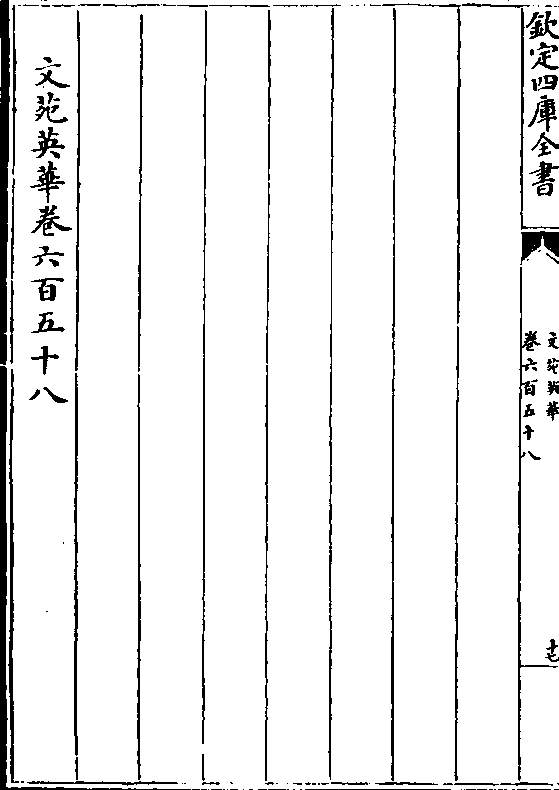 欽定四庫全書
文苑英華
卷六百五十八
十七
文苑英華卷六百五十八